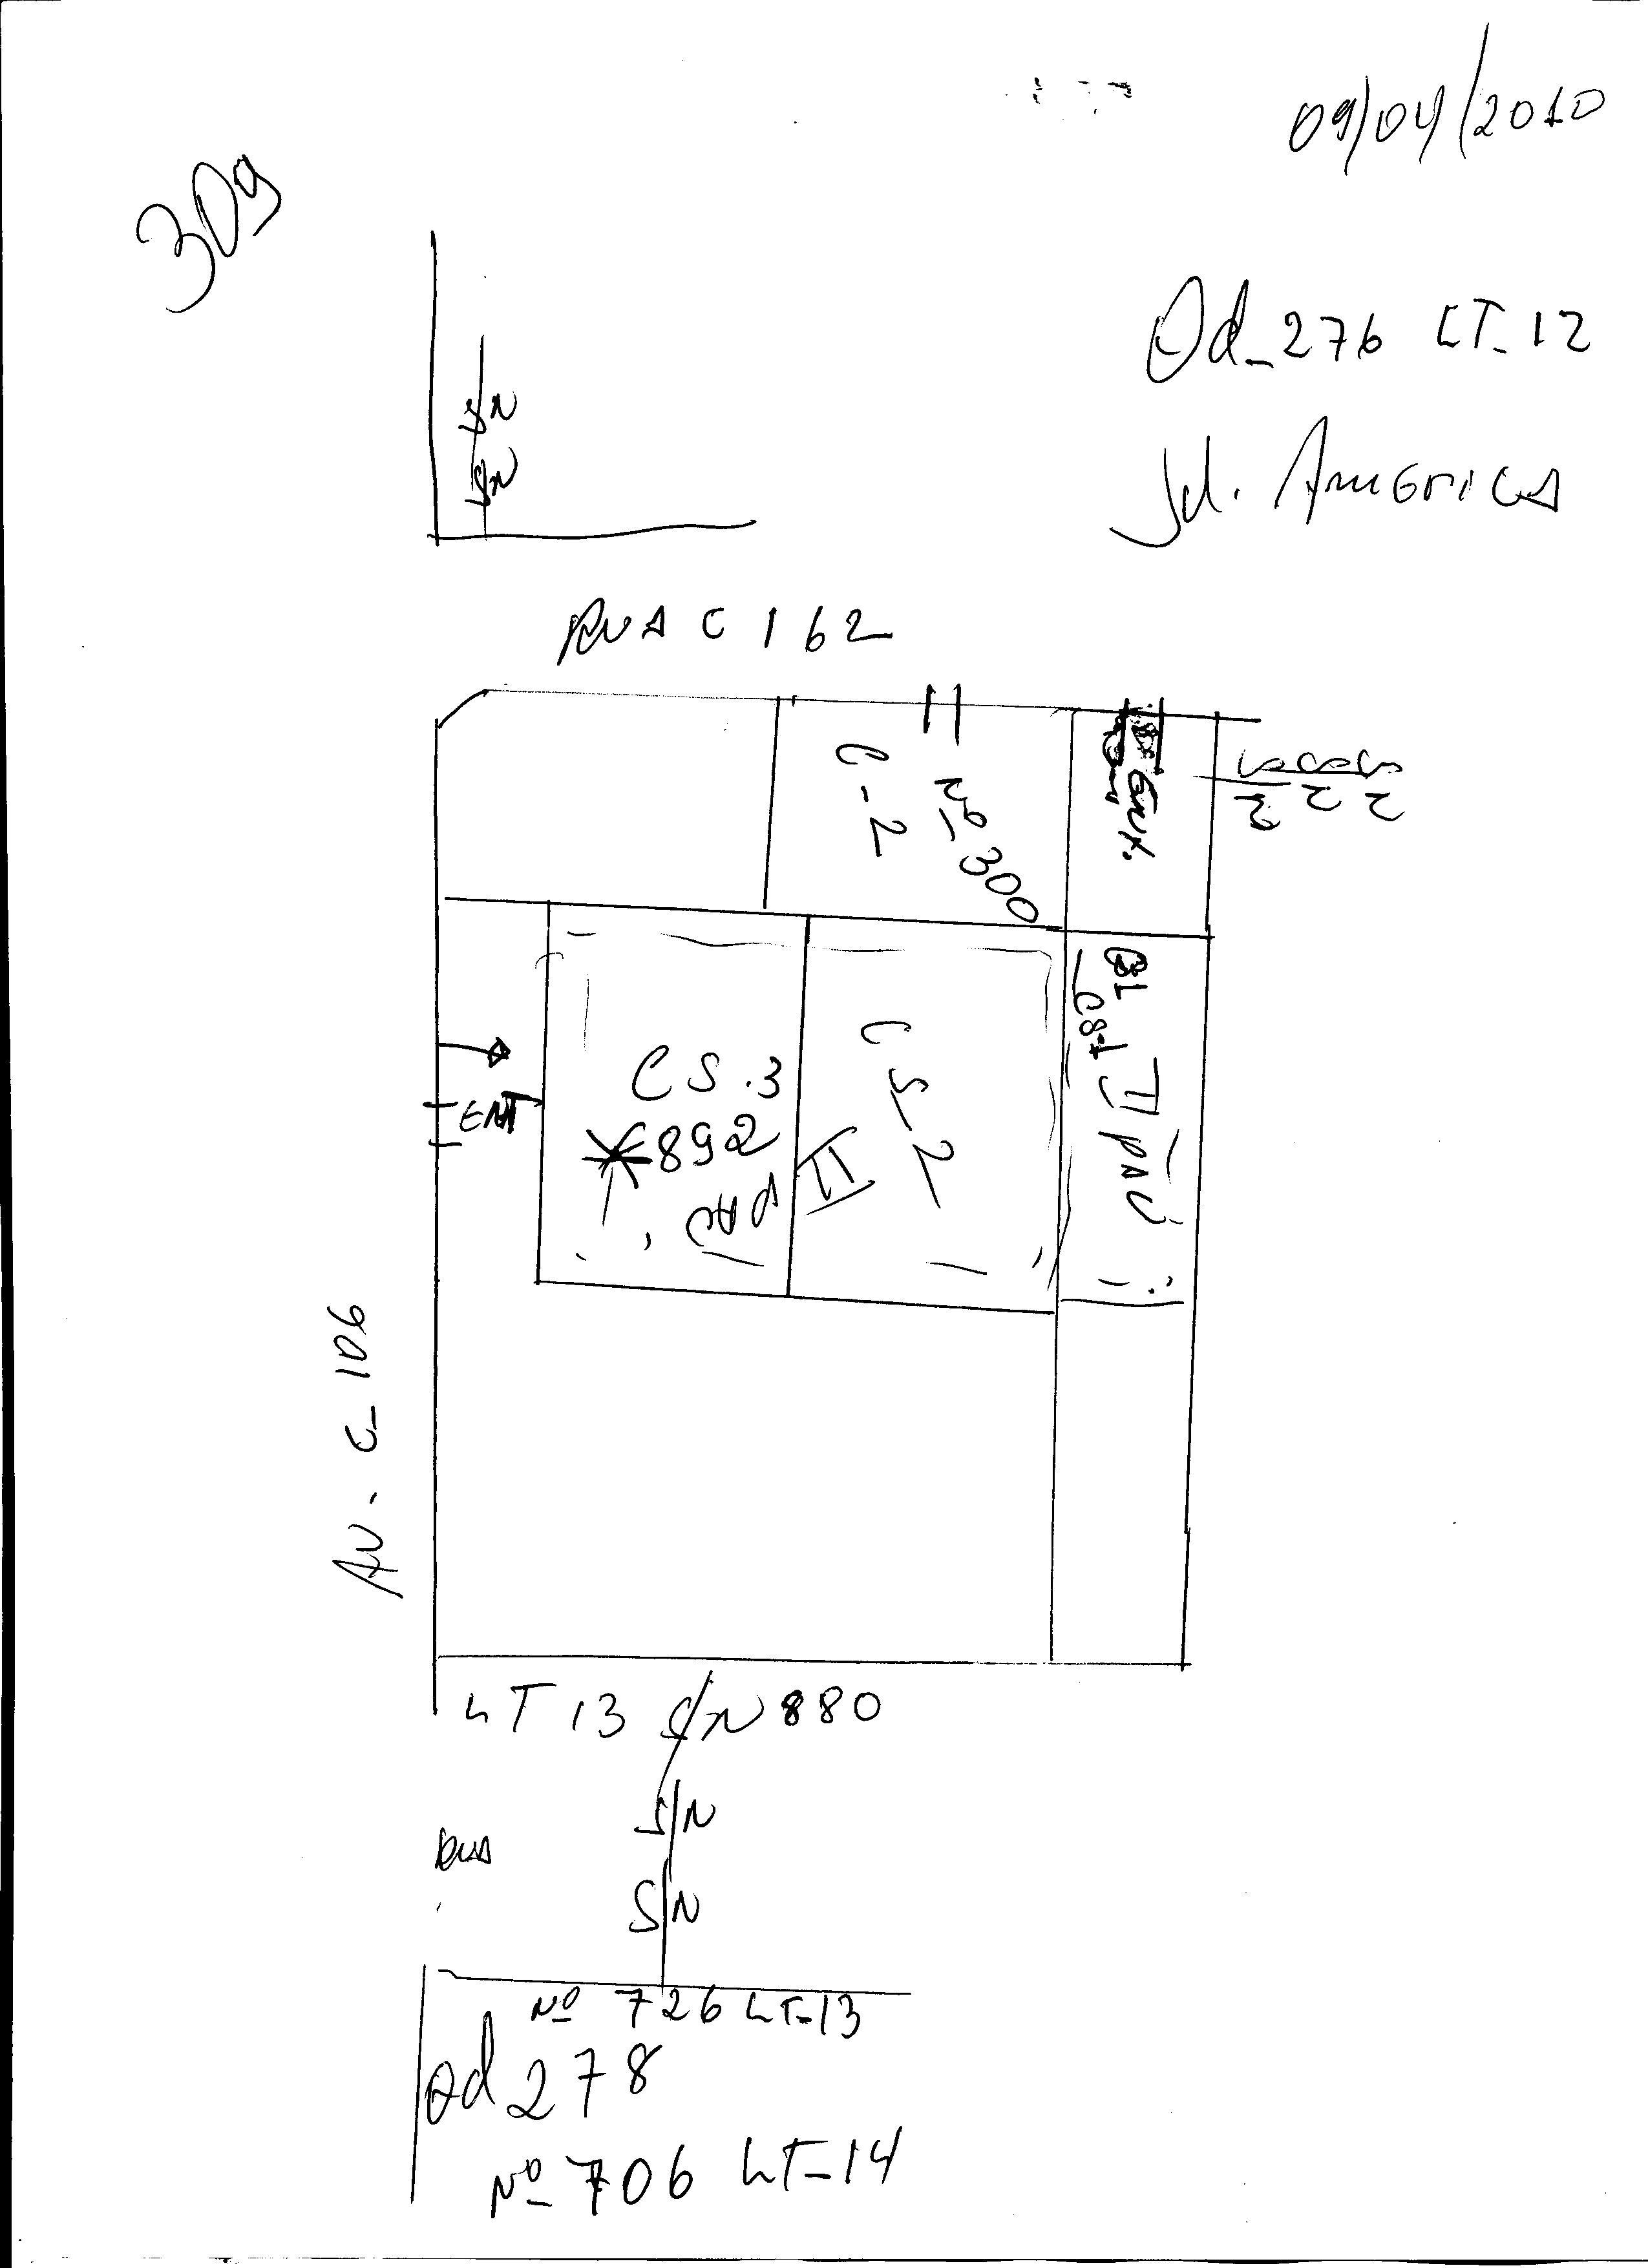 09/04/2010
309
Qd_276 LT_12
Jd. AméricA
S/N
S/N
RUA C 162
C-2
Nº 300
ENT.
S/N
S/N
S/N
BL
CS-1
II PAV
ENT
CS.3
892
II PAV
CS_2
AV. C_106
LT 13 S/N 880
S/N
RUA
S/N
Nº 726 LT-13
Qd 278
Nº 706 LT-14